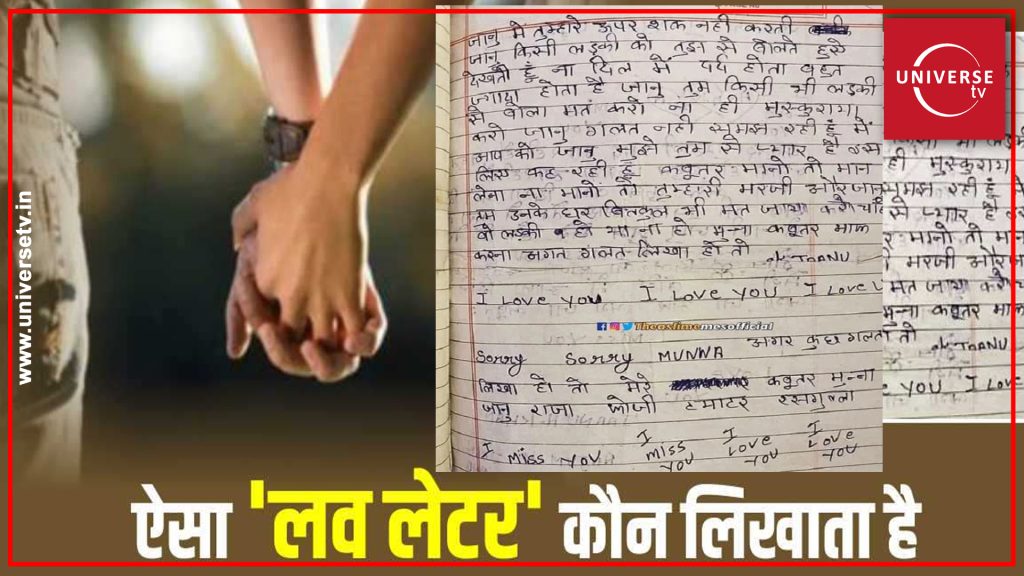 जानु मे तुम्हारे ऊपर शक नही करती
जानु किसी लड़की को तुझ से बोलत हुऐ
देखती हूँ ना दिल में दर्द होता बहुत
ज्यादा होता है जानु तुम किसी भी लड़की
से बोला मत करो ना ही मुस्कुराया
करो जानु गलत नही समझ रही हूँ में
आप को जानु मुझे तुम से प्यार है इस
लिए कह रही हूँ कबूतर मानो तो मान
लेना ना मानो तो तुम्हारी मरजी और जानु
तुम उनके घर बिलकुल भी मत जाया करो चाहे
वो लड़की हो या ना हो मुन्ना कबूतर माफ
करना अगर गलत लिखा हो तो
JAANU
I Love you I Love you I Love
Theaslimemesofficial
Sorry Sorry MUNNA अगर कुछ गलत
लिखा हो तो मेरे कबूतर मुन्ना
जानु राजा टमाटर रसगुल्ला
I miss you I miss you I Love you I Love you
UNIVERSE
tv
ही मुस्कुराया
समझ रही हूँ
से प्यार है इस
मानो तो मान
मरजी और
मत जाया करो
मुन्ना कबूतर माफ
तो
JAANU
YOU I Love
www.universetv.in
ऐसा 'लव लेटर' कौन लिखाता है